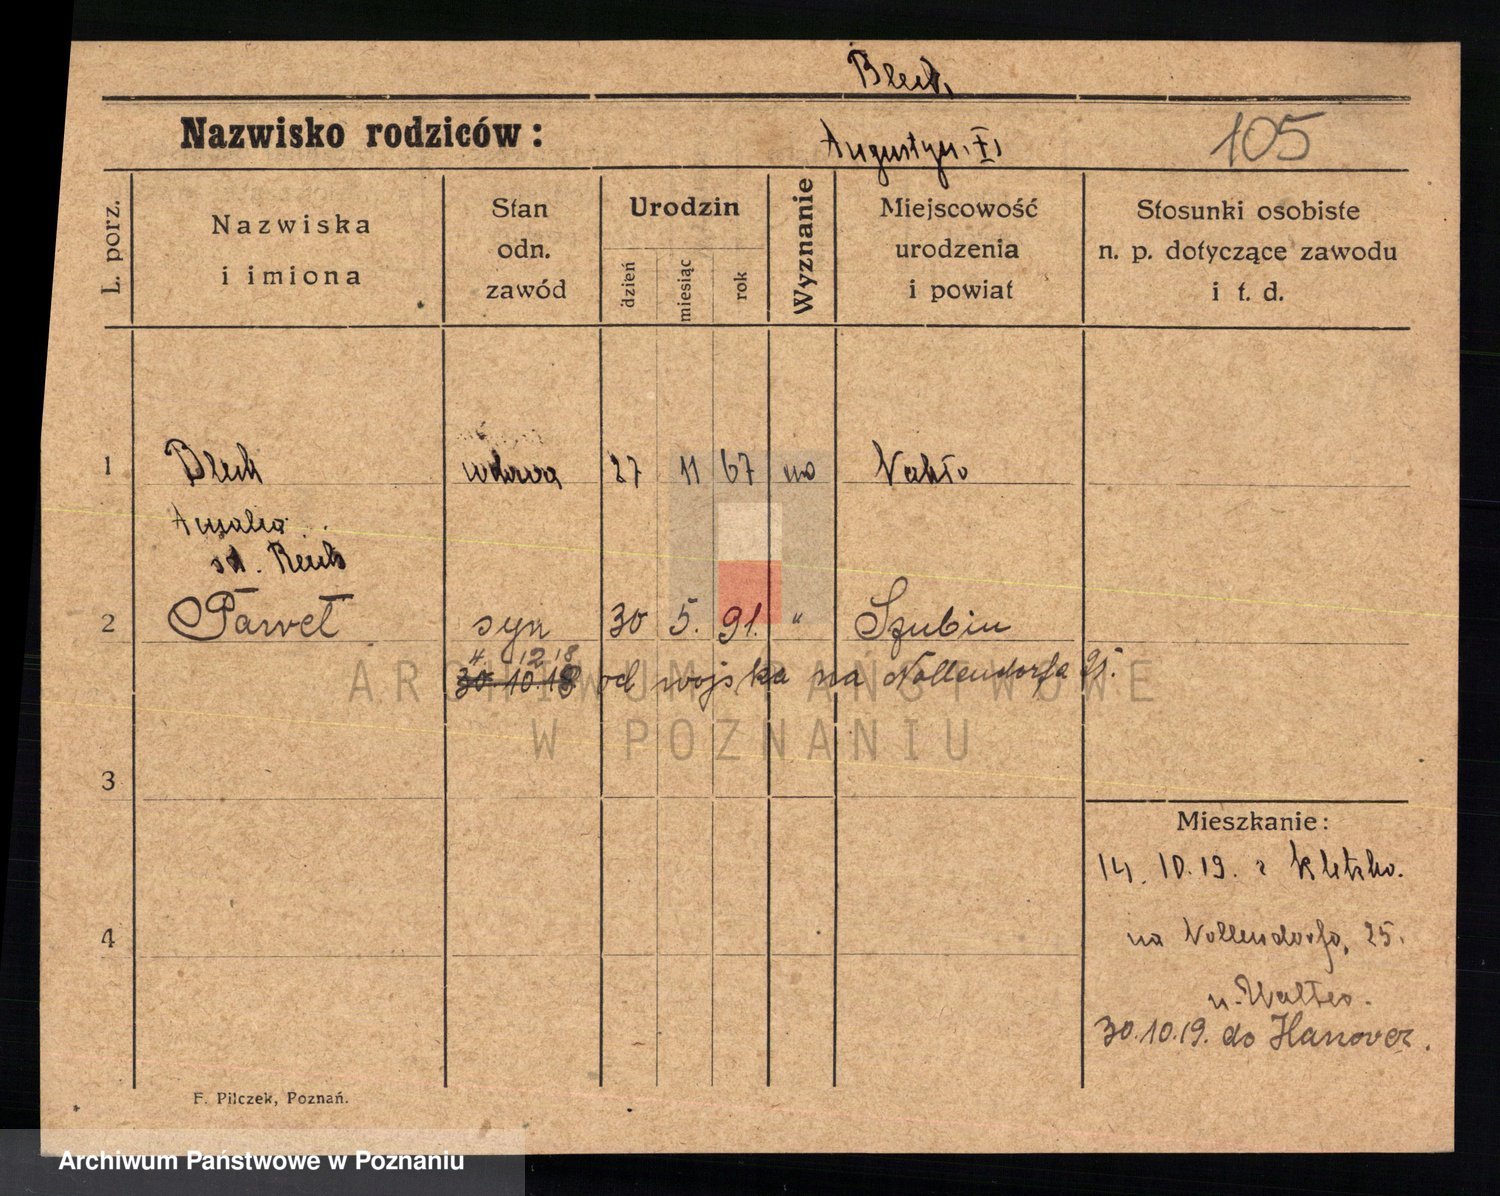 Blech,
Nazwisko rodziców:
Augustyn. I,
105
L. porz.
Nazwiska
i imiona
Stan
odn.
zawód
Urodzin
dzień
miesiąc
rok
Wyznanie
Miejscowość
urodzenia
i powiat
Stosunki osobiste
n. p. dotyczące zawodu
i t. d.
1 Blech wdowa 27 11 67 Nakło
2 Paweł syn 30 5. 91. " Szubin
4 12 18
30 10 18 od wojska na Nollendorfa 25.
ARCHIWUM PAŃSTWOWE
W POZNANIU
3
Mieszkanie:
14. 10. 19. z Kletzko.
4
na Nollendorfa, 25.
30.10.19. do Hanover.
F. Pilczek, Poznań.
Archiwum Państwowe w Poznaniu